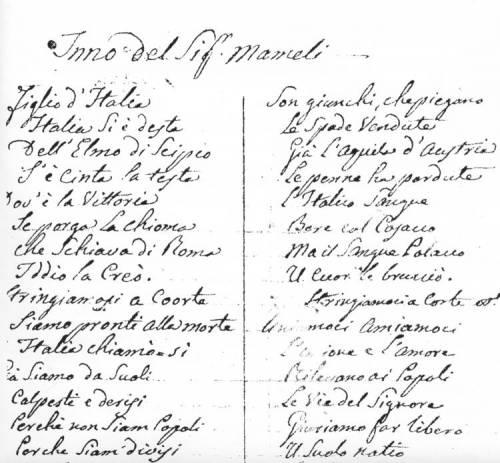 Inno del Sig.r Mameli
Figlio d'Italia
Italia Si è desta
Dell'Elmo di Scipio
S'è Cinta la testa
Dov'è la Vittoria
Le porga la chioma
che Schiava di Roma
Iddio la Creò.
Stringiamosi a Coorte
Siamo pronti alla morte
Italia chiamò = si
Già Siamo da Suoli
Calpesti e derisi
Perchè non Siam Popoli
Perche Siam divisi
Son giunchi, che piegano
Le Spade Vendute
Già L'Aquila d'Austria
Le penne ha pardute
L'Italico Sangue
Bere col Cosacco
Ma il Sangue Polacco
Il Cuor le bruciò.
Stringiamoci a Corte
Uniamoci Amiamoci
L'Unione e L'amore
Rilevano ai Popoli
Le Vie del Signore
Giuriamo far libero
Il Suolo natio